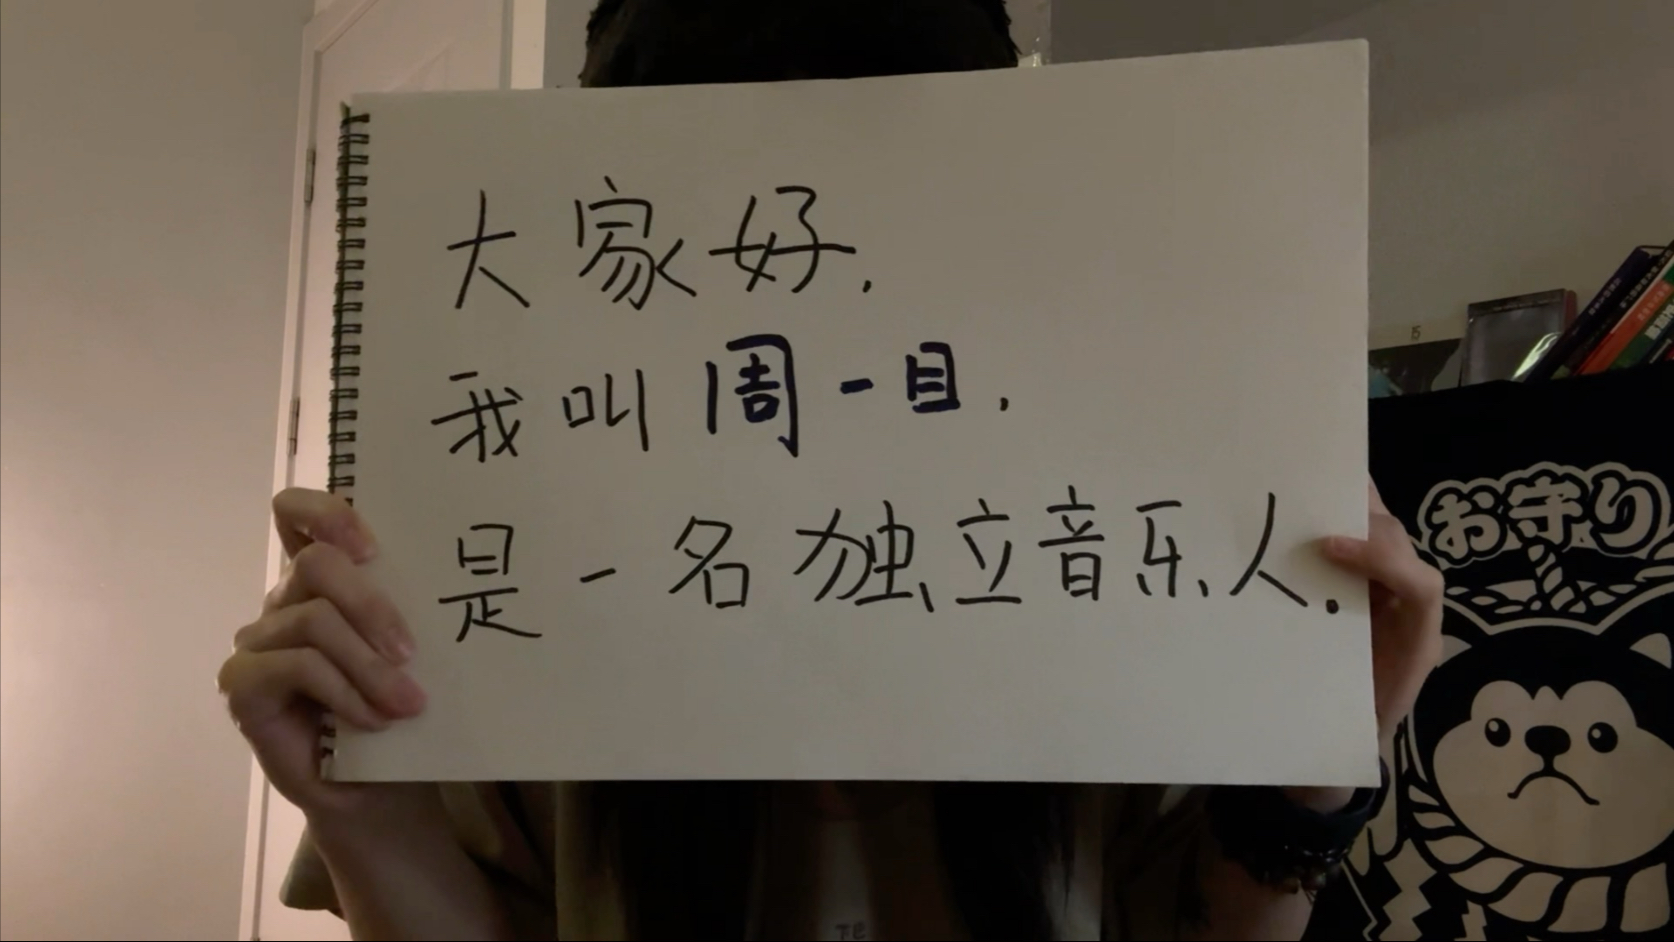 大家好.
我叫周一目.
是一名独立音乐人.
お守り